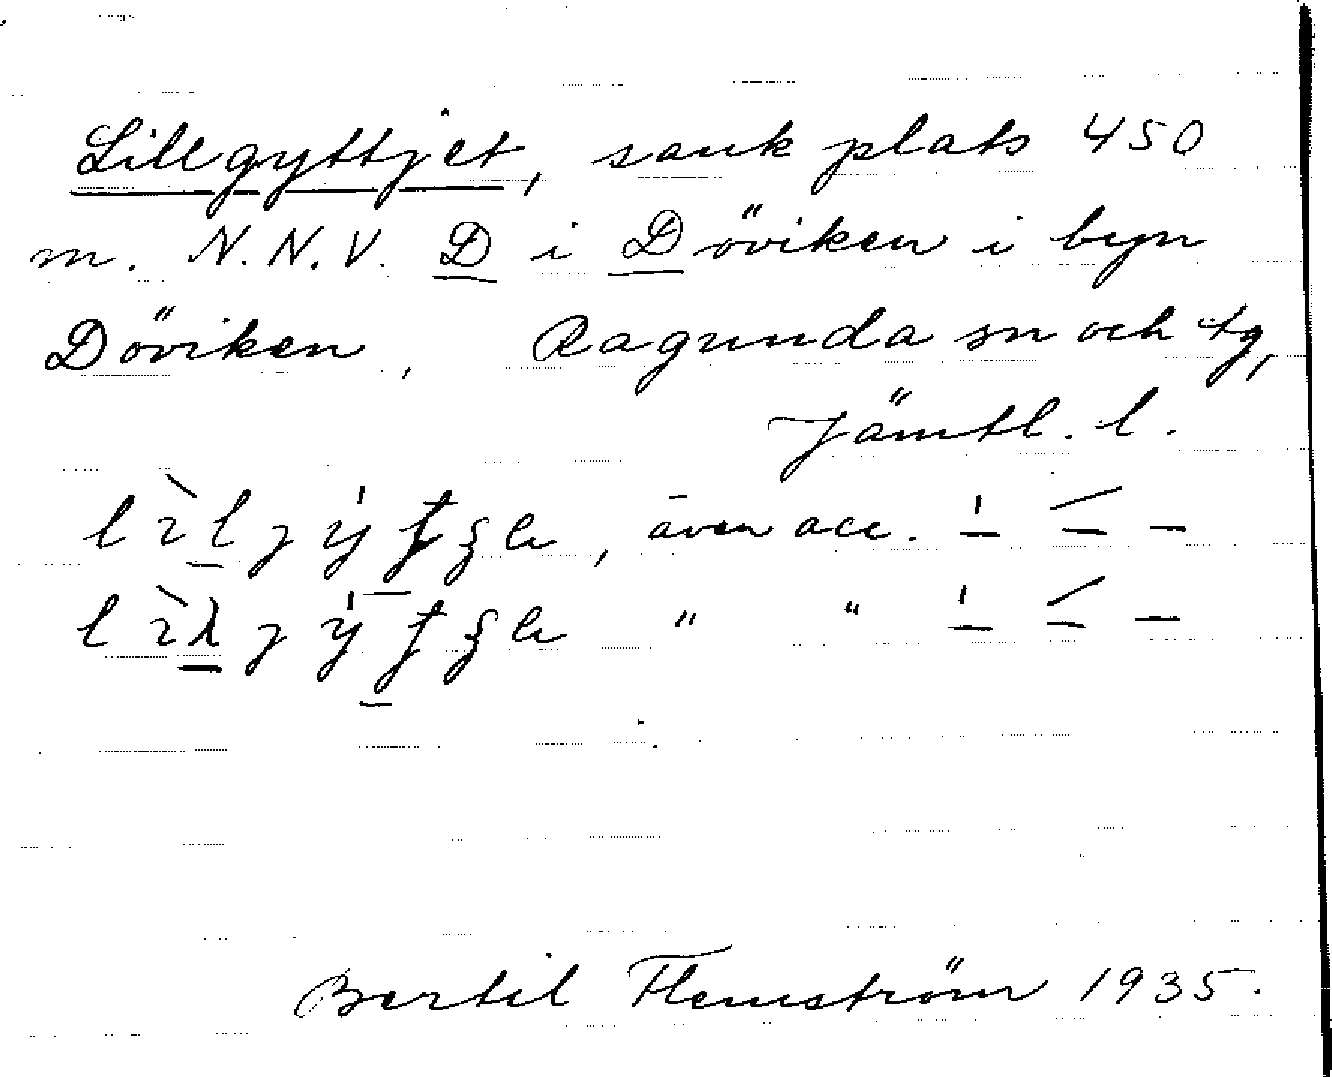 Lillgyttjet, sank plats 450
m. N.N.V. D i Döviken i byn
Döviken, Ragunda sn och tg,
Jämtl. l.
även acc.
" "
Bertil Flemström 1935.